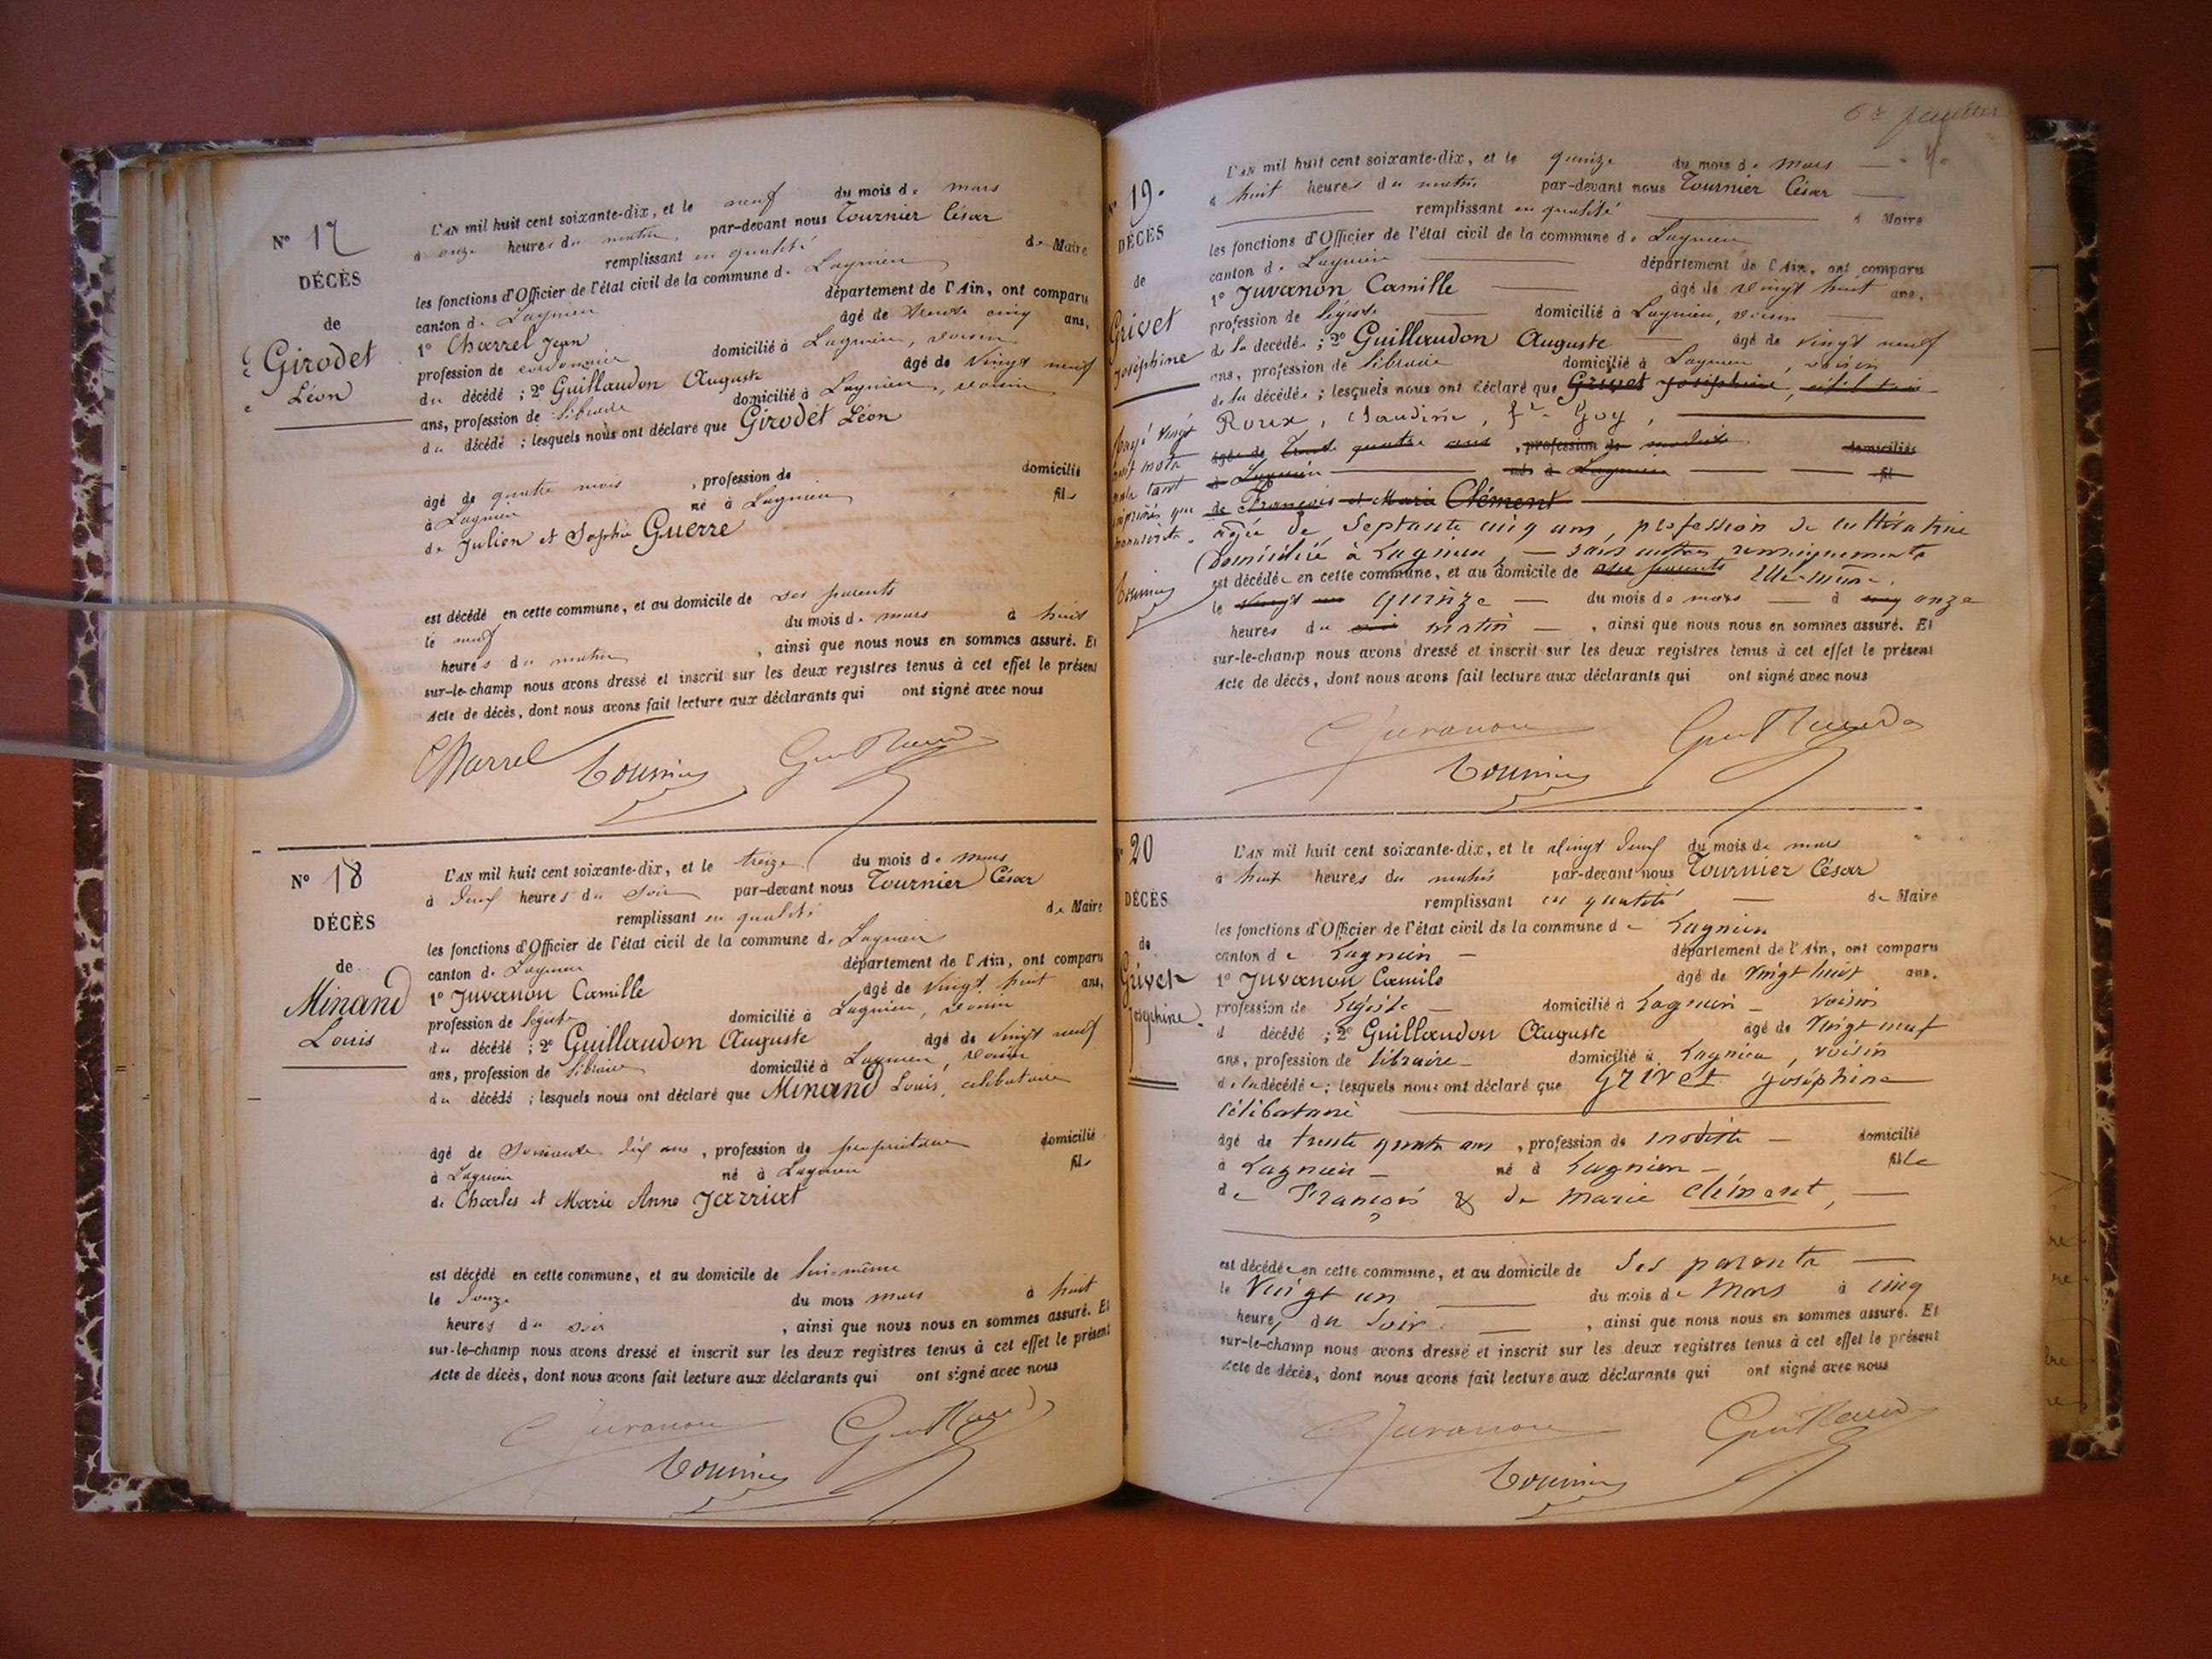 N° 17
DÉCÈS
de
Girodet
Léon
L'AN mil huit cent soixante-dix, et le neuf du mois de mars
à onze heures du matin par-devant nous Tournier César
remplissant en qualité de Maire
les fonctions d'Officier de l'état civil de la commune de Lagnieu
canton de Lagnieu département de l'Ain, ont comparu
1° Charrel Jean âgé de trente cinq ans,
profession de cordonnier domicilié à Lagnieu, voisin
du décédé ; 2° Guillaudon Auguste âgé de vingt neuf
ans, profession de libraire domicilié à Lagnieu, voisin
du décédé ; lesquels nous ont déclaré que Girodet Léon
âgé de quatre mois , profession de domicilié
à Lagnieu né à Lagnieu fils
de Julien et Sophie Guerre
est décédé en cette commune, et au domicile de ses parents
le neuf du mois de mars à huit
heures du matin , ainsi que nous nous en sommes assuré. Et
sur-le-champ nous avons dressé et inscrit sur les deux registres tenus à cet effet le présent
Acte de décès, dont nous avons fait lecture aux déclarants qui ont signé avec nous
Charrel Tournier Guillaudon
N° 18
DÉCÈS
de
Minand
Louis
L'AN mil huit cent soixante-dix, et le treize du mois de mars
à deux heures du soir par-devant nous Tournier César
remplissant en qualité de Maire
les fonctions d'Officier de l'état civil de la commune de Lagnieu
canton de Lagnieu département de l'Ain, ont comparu
1° Juvanon Camille âgé de vingt huit ans,
profession de légiste domicilié à Lagnieu, voisin
du décédé ; 2° Guillaudon Auguste âgé de vingt neuf
ans, profession de libraire domicilié à Lagnieu, voisin
du décédé ; lesquels nous ont déclaré que Minand Louis, célibataire
âgé de soixante dix ans , profession de propriétaire domicilié
à Lagnieu né à Lagnieu fils
de Charles et Marie Anne Jarriat
est décédé en cette commune, et au domicile de lui-même
le douze du mois mars à huit
heures du soir , ainsi que nous nous en sommes assuré. Et
sur-le-champ nous avons dressé et inscrit sur les deux registres tenus à cet effet le présent
Acte de décès, dont nous avons fait lecture aux déclarants qui ont signé avec nous
Juvanon Guillaudon
Tournier
N° 19.
DÉCÈS
de
Grivet
Joséphine
rayé vingt
huit mots
tant
imprimés que
manuscrits.
Tournier
L'AN mil huit cent soixante-dix, et le quinze du mois de mars
à huit heures du matin par-devant nous Tournier César
remplissant en qualité d Maire
les fonctions d'Officier de l'état civil de la commune de Lagnieu
canton de Lagnieu département de l'Ain, ont comparu
1° Juvanon Camille âgé de vingt huit ans,
profession de légiste domicilié à Lagnieu, voisin
de la décédée ; 2° Guillaudon Auguste âgé de vingt neuf
ans, profession de libraire domicilié à Lagnieu, voisin
de la décédée ; lesquels nous ont déclaré que Grivet Joséphine, célibataire
Roux, Claudine, fe Goy,
âgé de trente quatre ans , profession de modiste domiciliée
à Lagnieu née à Lagnieu fil
de François et Marie Clément
âgée de septante cinq ans, profession de cultivatrice
domiciliée à Lagnieu, — sans autres renseignements
est décédée en cette commune, et au domicile de ses parents elle-même.
le vingt un quinze du mois de mars à cinq onze
heures du soir matin , ainsi que nous nous en sommes assuré. Et
sur-le-champ nous avons dressé et inscrit sur les deux registres tenus à cet effet le présent
Acte de décès, dont nous avons fait lecture aux déclarants qui ont signé avec nous
Juvanon Guillaudon
Tournier
N° 20
DÉCÈS
de
Grivet
Joséphine.
L'AN mil huit cent soixante-dix, et le vingt deux du mois de mars
à huit heures du matin par-devant nous Tournier César
remplissant en qualité de Maire
les fonctions d'Officier de l'état civil de la commune de Lagnieu
canton de Lagnieu département de l'Ain, ont comparu
1° Juvanon Camile âgé de vingt huit ans.
profession de légiste domicilié à Lagnieu voisin
d décédé ; 2° Guillaudon Auguste âgé de vingt neuf
ans, profession de libraire domicilié à Lagnieu, voisin
de la décédée ; lesquels nous ont déclaré que Grivet Joséphine
célibataire
âgé de trente quatre ans , profession de modiste domicilié
à Lagnieu né à Lagnieu fille
de François & de Marie Clément,
est décédée en cette commune, et au domicile de ses parents
le vingt un du mois de mars à cinq
heures du soir. , ainsi que nous nous en sommes assuré. Et
sur-le-champ nous avons dressé et inscrit sur les deux registres tenus à cet effet le présent
Acte de décès, dont nous avons fait lecture aux déclarants qui ont signé avec nous
Juvanon Guillaudon
Tournier